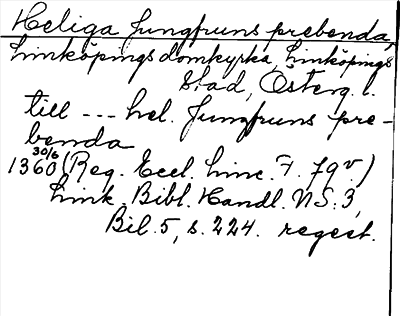 Heliga Jungfruns prebenda,
Linköpings domkyrka, Linköpings
stad, Österg. l.
till --- hel. Jungfruns pre-
benda
1360 30/6 (Reg. Eccl. Linc. F. 79v.)
Link. Bibl. Handl. NS. 3,
Bil. 5, s. 224. regest.